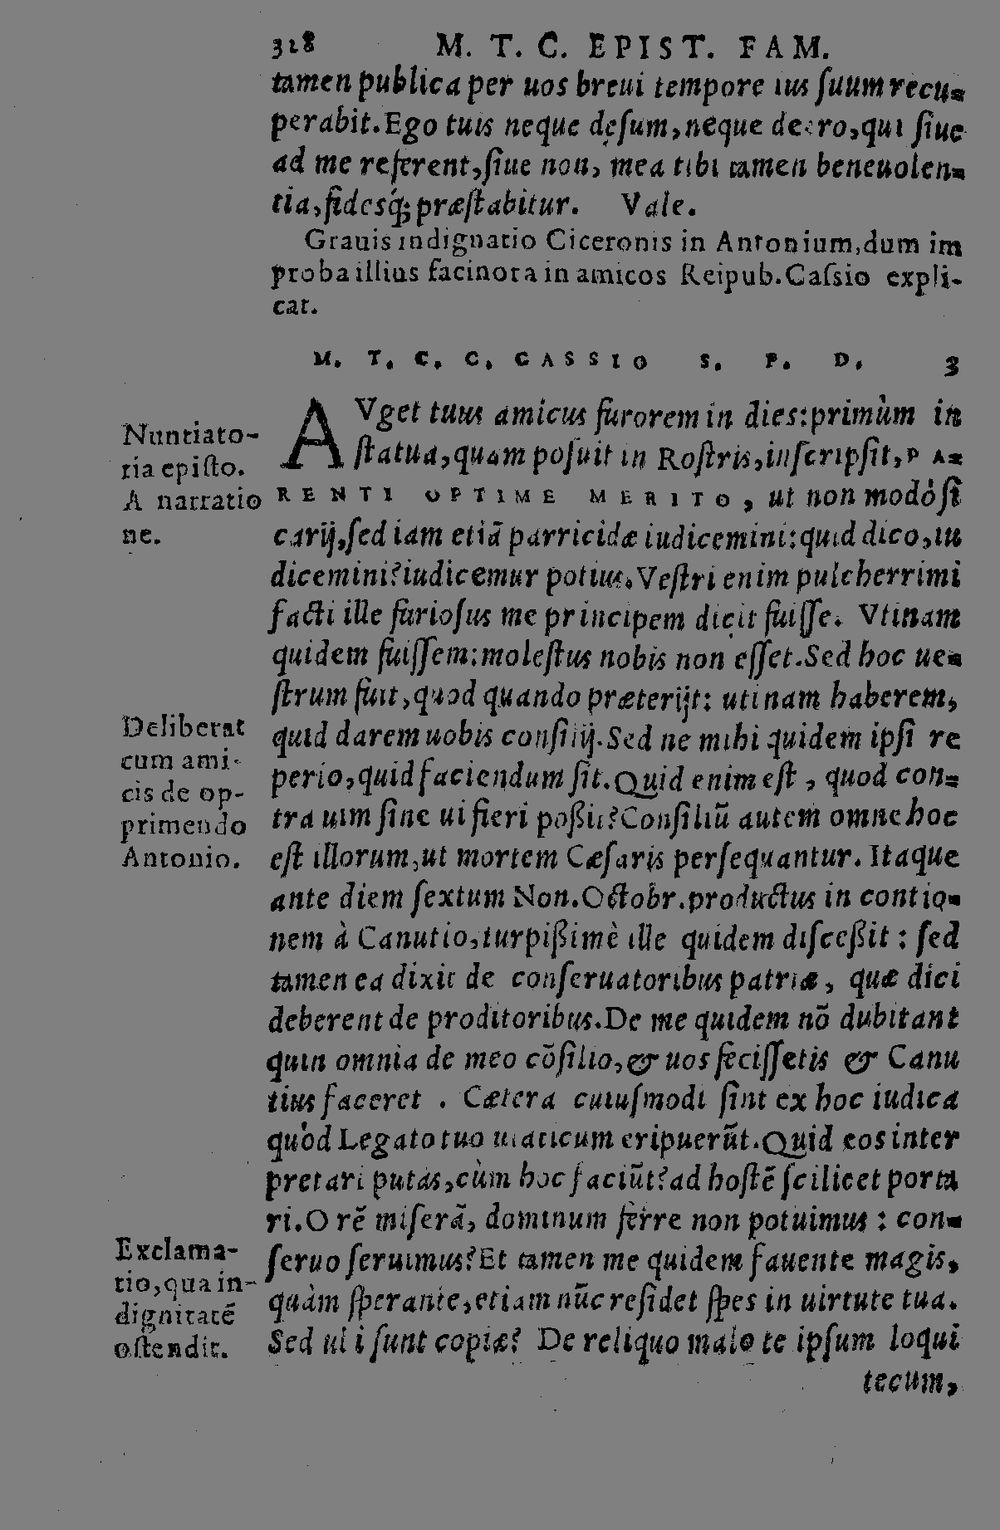 318 M. T. C. EPIST. FAM.
tamen publica per uos breui tempore ius ſuum recu-
perabit. Ego tuis neque deſum, neque deero, qui ſiue
ad me referent, ſiue non, mea tibi tamen beneuolen-
tia, fidesq́; præſtabitur. Vale.
Grauis indignatio Ciceronis in Antonium, dum im
proba illius facinora in amicos Reipub. Caſsio expli-
cat.
M. T. C. C. CASSIO S. P. D. 3
AVget tuus amicus furorem in dies: primùm in
ſtatua, quam poſuit in Roſtris, inſcripſit, PA-
RENTI OPTIME MERITO, ut non modò ſi
carij, ſed iam etiã parricidæ iudicemini: quid dico, iu
dicemini? iudicemur potius. Veſtri enim pulcherrimi
facti ille furioſus me principem dicit fuiſſe. Vtinam
quidem fuiſſem: moleſtus nobis non eſſet. Sed hoc ue-
ſtrum fuit, quod quando præterijt: utinam haberem,
quid darem uobis conſilij. Sed ne mihi quidem ipſi re
perio, quid faciendum ſit. Quid enim eſt, quod con-
tra uim ſine ui fieri poßit? Conſiliũ autem omne hoc
eſt illorum, ut mortem Cæſaris perſequantur. Itaque
ante diem ſextum Non. Octobr. productus in contio-
nem à Canutio, turpißimè ille quidem diſceßit: ſed
tamen ea dixit de conſeruatoribus patriæ, quæ dici
deberent de proditoribus. De me quidem nõ dubitant
quin omnia de meo cõſilio, & uos feciſſetis & Canu
tius faceret. Cætera cuiuſmodi ſint ex hoc iudica
quòd Legato tuo uiaticum eripuerũt. Quid eos inter
pretari putas, cùm hoc faciũt? ad hoſtẽ ſcilicet porta
ri. O rẽ miſerã, dominum ferre non potuimus: con-
ſeruo ſeruimus? Et tamen me quidem fauente magis,
quàm ſperante, etiam nũc reſidet ſpes in uirtute tua.
Sed ubi ſunt copiæ? De reliquo malo te ipſum loqui
tecum,
Nuntiato-
ria epiſto.
A narratio
ne.
Deliberat
cum ami-
cis de op-
primendo
Antonio.
Exclama-
tio, qua in-
dignitatẽ
oſtendit.